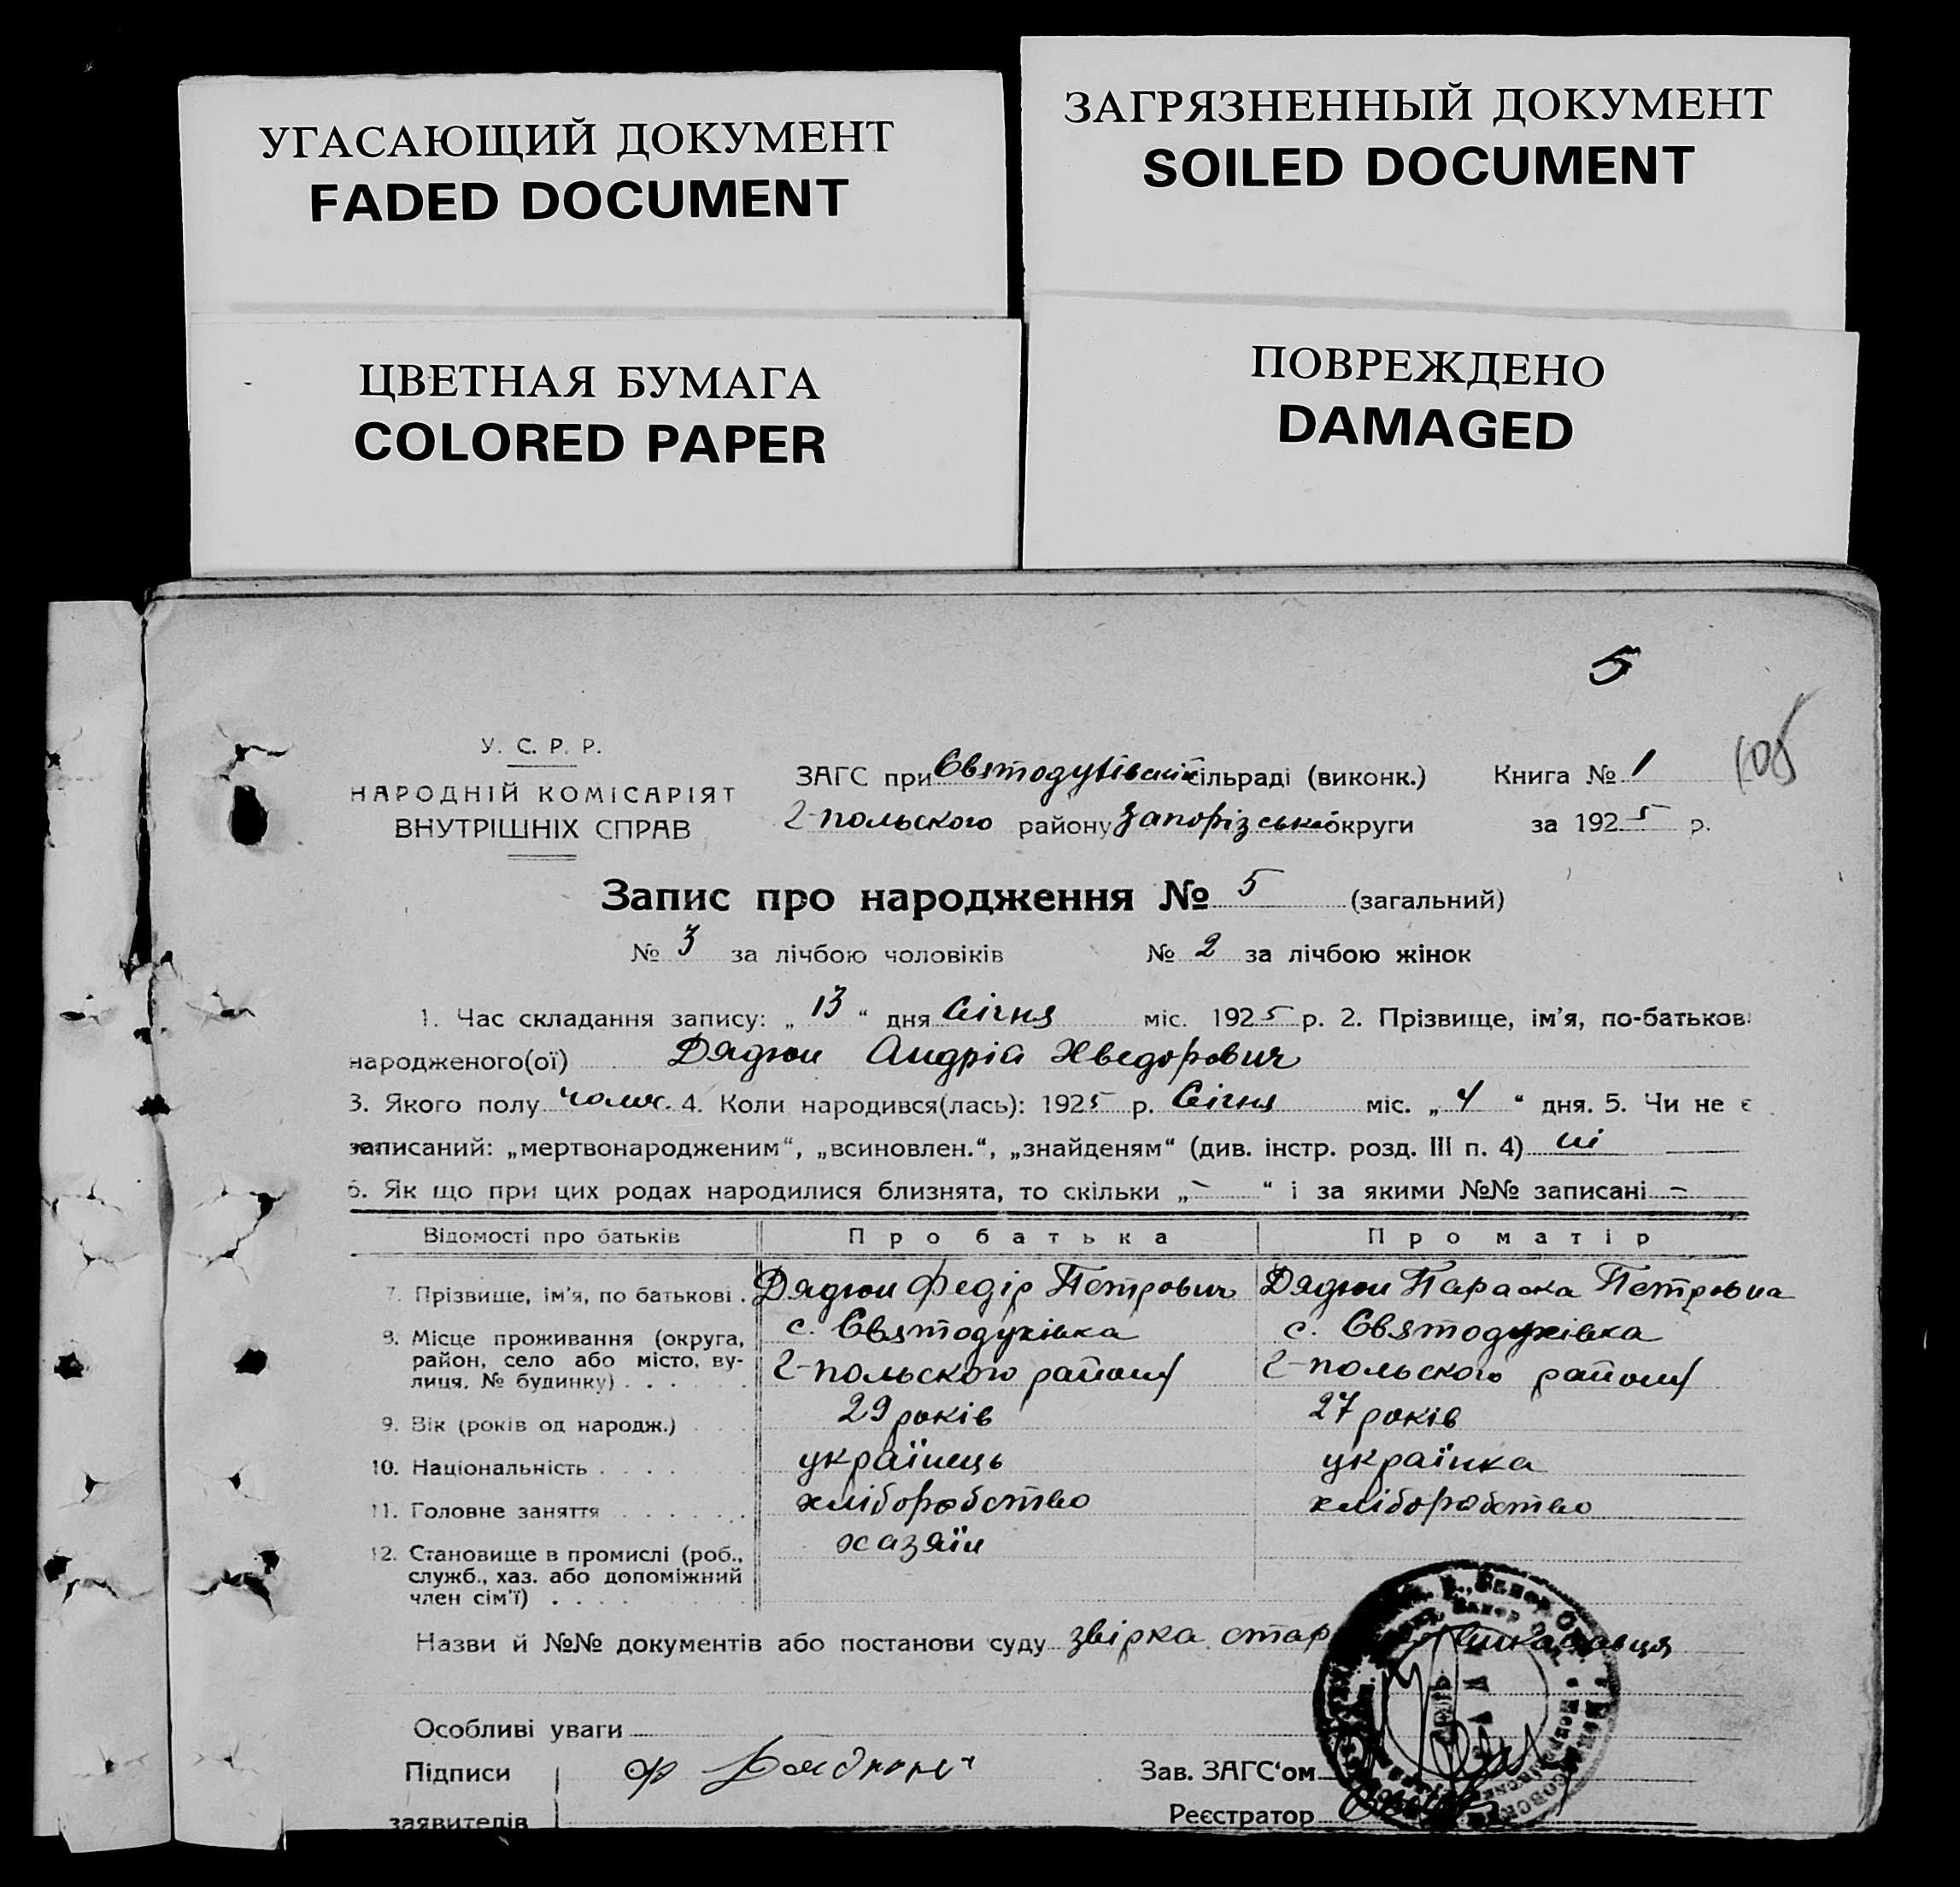 УГАСАЮЩИЙ ДОКУМЕНТ
FADED DOCUMENT
ЗАГРЯЗНЕННЫЙ ДОКУМЕНТ
SOILED DOCUMENT
ЦВЕТНАЯ БУМАГА
COLORED PAPER
ПОВРЕЖДЕНО
DAMAGED
5
105
У. С. Р. Р.
НАРОДНІЙ КОМІСАРІЯТ
ВНУТРІШНІХ СПРАВ
ЗАГС при Святодухівській сільраді (виконк.) Книга № 1
2-польского району Запорізської округи за 1925 р.
Запис про народження № 5 (загальний)
№ 3 за лічбою чоловіків № 2 за лічбою жінок
1. Час складання запису: „ 13 “ дня Січня міс. 1925 р. 2. Прізвище, ім'я, по-батькові
народженого(ої) Дядюн Андрій Хведорович
3. Якого полу чолов. 4. Коли народився(лась): 1925 р. Січня міс. „ 4 “ дня. 5. Чи не є
записаний: „мертвонародженим“, „всиновлен.“, „знайденям“ (див. інстр. розд. III п. 4) ні
6. Як що при цих родах народилися близнята, то скільки „ - “ і за якими №№ записані -
Відомості про батьків Про батька Про матір
7. Прізвище, ім'я, по батькові . Дядюн Федір Петрович Дядюн Параска Петровна
8. Місце проживання (округа, район, село або місто, вулиця, № будинку) . . . . . . с. Святодухівка с. Святодухівка
2-польского району 2-польского району
9. Вік (років од народж.) . . . 29 років 27 років
10. Національність . . . . українець українка
11. Головне заняття . . . . . . хліборобство хліборобство
12. Становище в промислі (роб., служб., хаз. або допоміжний член сім'ї) . . . . хазяїн
Назви й №№ документів або постанови суду звірка стар
Особливі уваги
Підписи Ф Дядюн Зав. ЗАГС'ом
заявителів Реєстратор